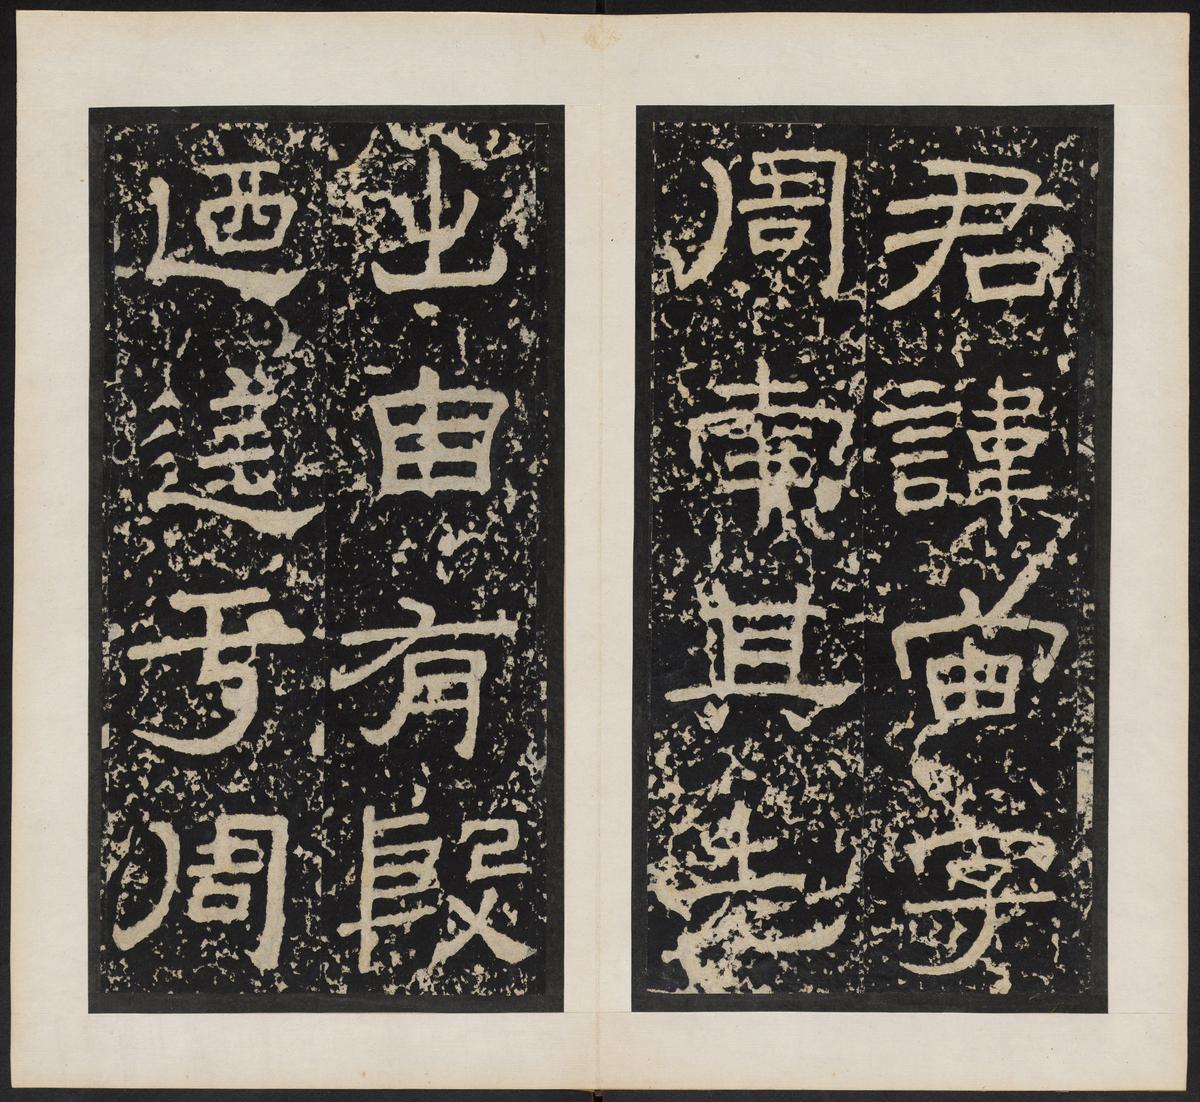 君諱宙字
周南其先
出由有殷
迺迄于周